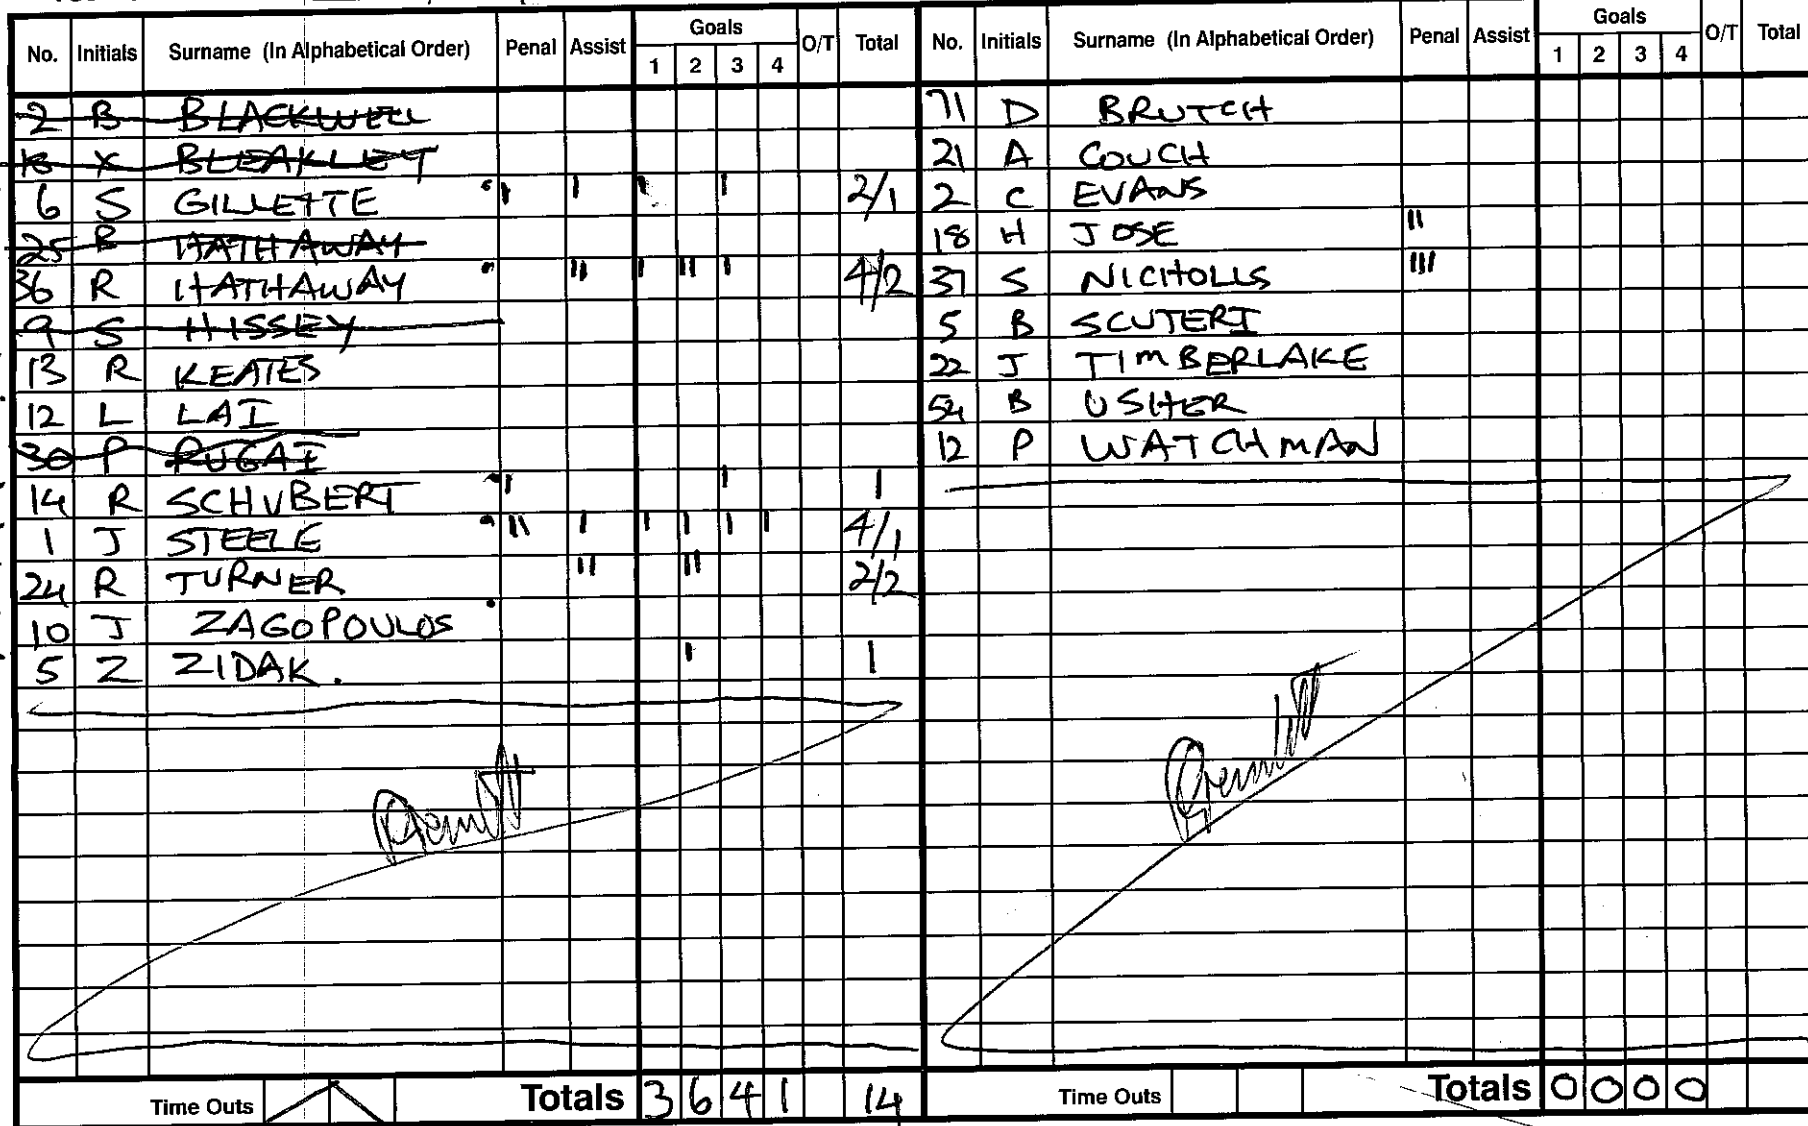 No. Initials Surname (In Alphabetical Order) Penal Assist Goals 1 2 3 4 O/T Total
2 B BLACKWELL
18 X BLEAKLEY
6 S GILLETTE I I I I 2/1
25 B HATHAWAY
36 R HATHAWAY II I II I 4/2
9 S HISSEY
13 R KEATES
12 L LAI
30 P RUGAI
14 R SCHUBERT I I 1
1 J STEELE II I I I I I 4/1
24 R TURNER II II 2/2
10 J ZAGOPOULOS
5 Z ZIDAK. I 1
Time Outs Totals 3 6 4 1 14
No. Initials Surname (In Alphabetical Order) Penal Assist Goals 1 2 3 4 O/T Total
71 D BRUTCH
21 A COUCH
2 C EVANS
18 H JOSE II
37 S NICHOLLS III
5 B SCUTERI
22 J TIMBERLAKE
54 B USHER
12 P WATCHMAN
Time Outs Totals 0 0 0 0